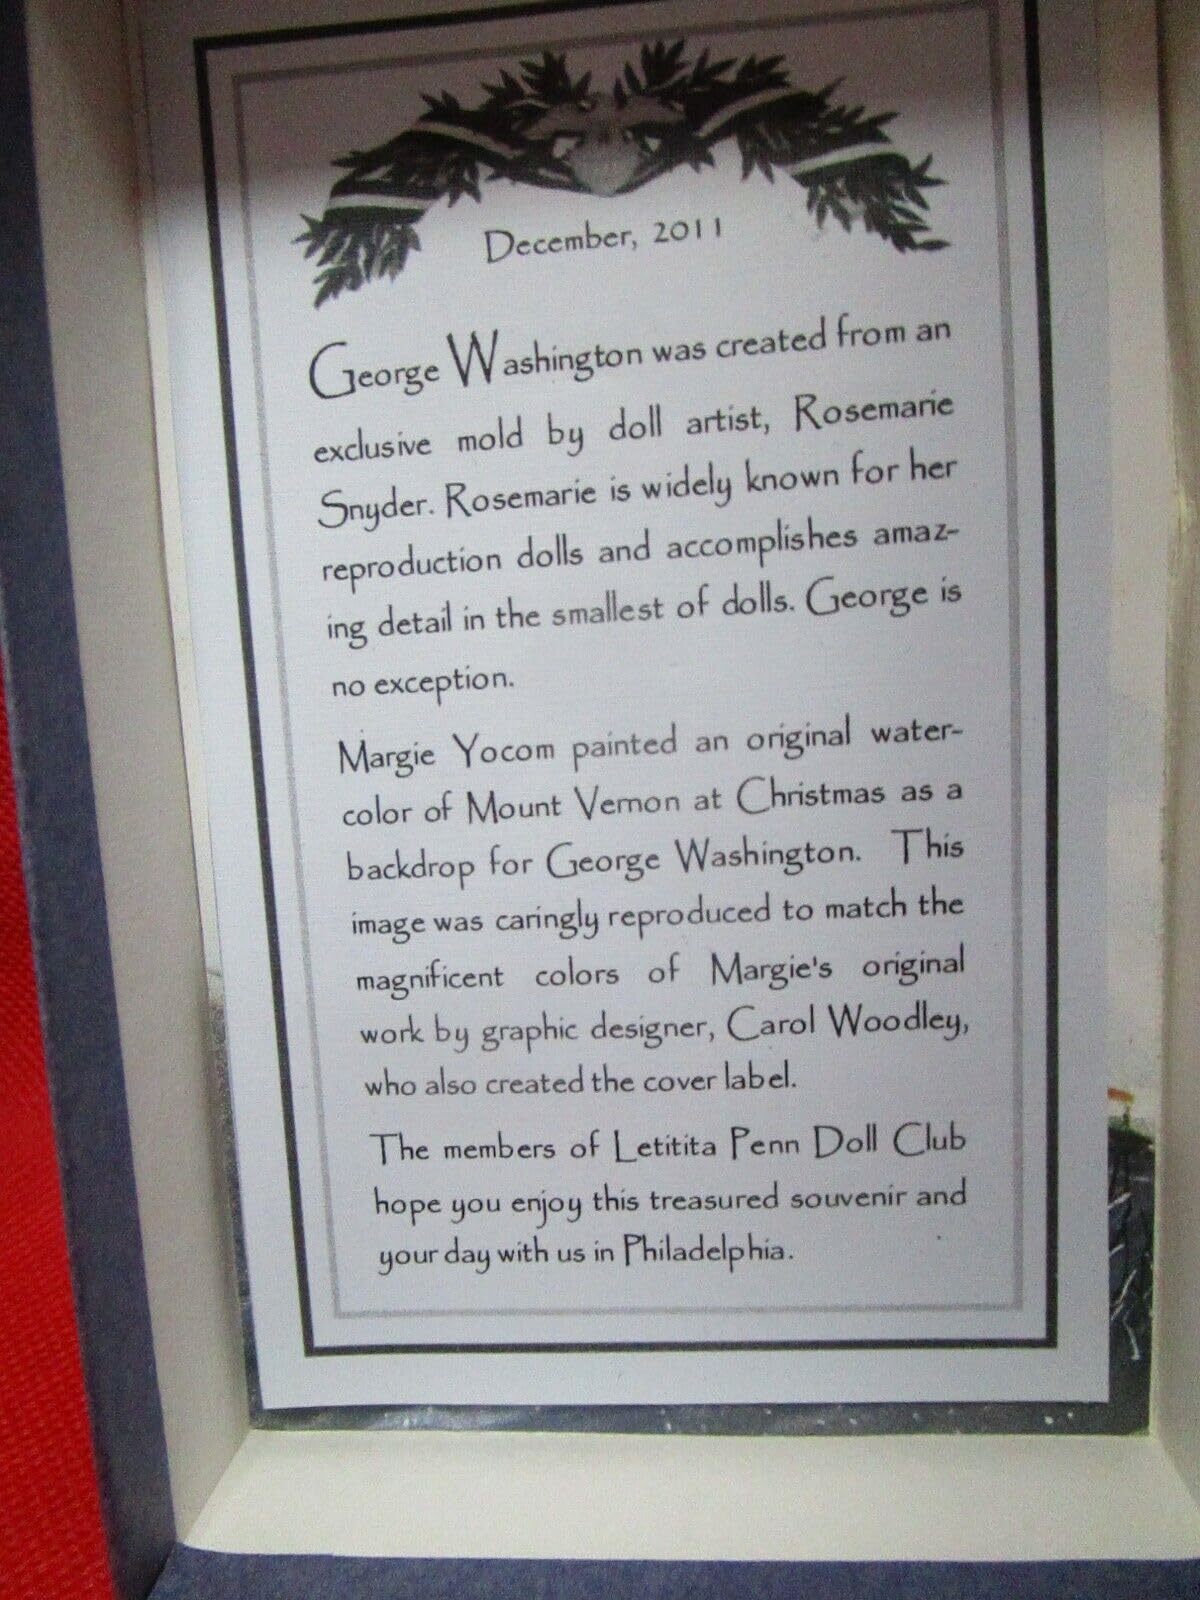 December, 2011
George Washington was created from an
exclusive mold by doll artist, Rosemarie
Snyder. Rosemarie is widely known for her
reproduction dolls and accomplishes amaz-
ing detail in the smallest of dolls. George is
no exception.
Margie Yocom painted an original water-
color of Mount Vernon at Christmas as a
backdrop for George Washington. This
image was caringly reproduced to match the
magnificent colors of Margie's original
work by graphic designer, Carol Woodley,
who also created the cover label.
The members of Letitita Penn Doll Club
hope you enjoy this treasured souvenir and
your day with us in Philadelphia.